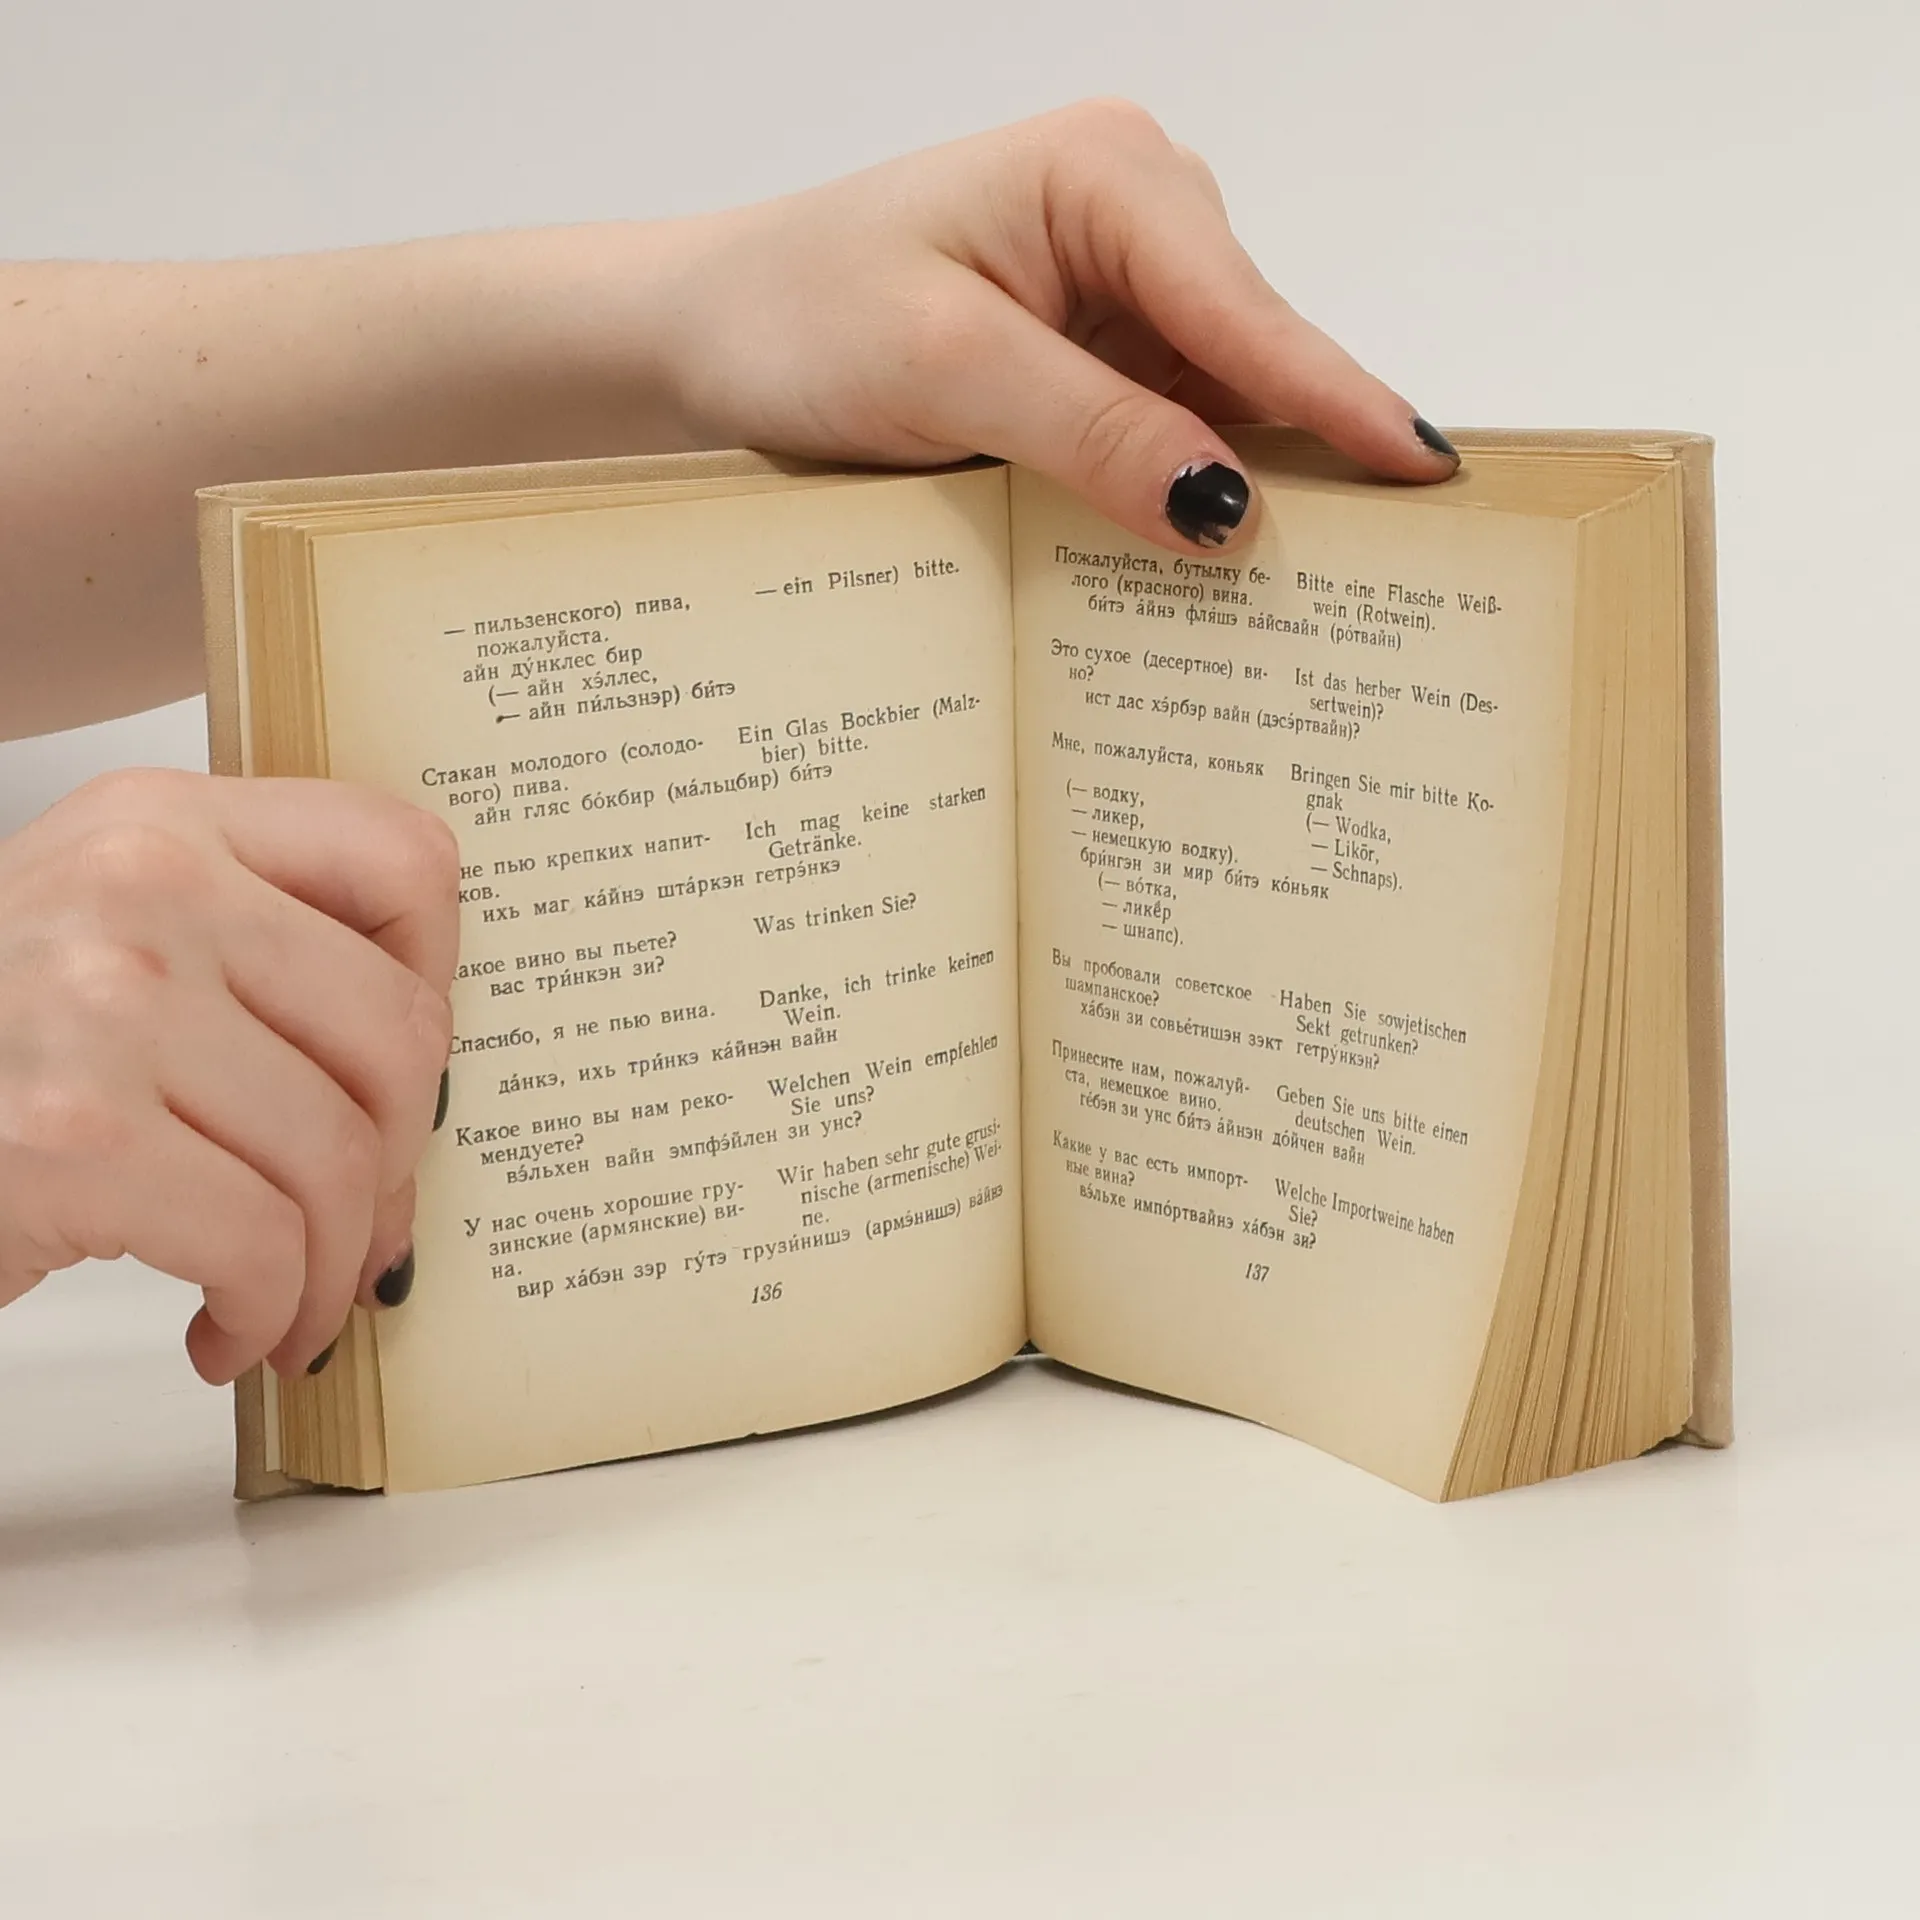 — пильзенского) пива,
пожалуйста.
айн ду́нклес бир
(— айн хэ́ллес,
— айн пи́льзнэр) би́тэ
— ein Pilsner) bitte.
Стакан молодого (солодо-
вого) пива.
Ein Glas Bockbier (Malz-
bier) bitte.
айн гляс бо́кбир (ма́льцбир) би́тэ
не пью крепких напит-
ков.
Ich mag keine starken
Getränke.
ихь маг ка́йнэ шта́ркэн гетрэ́нкэ
вино вы пьете?
Was trinken Sie?
вас три́нкэн зи?
Спасибо, я не пью вина.
Danke, ich trinke keinen
Wein.
да́нкэ, ихь три́нкэ ка́йнэн вайн
Какое вино вы нам реко-
мендуете?
Welchen Wein empfehlen
Sie uns?
вэ́льхен вайн эмпфэ́йлен зи унс?
У нас очень хорошие гру-
зинские (армянские) ви-
на.
Wir haben sehr gute grusi-
nische (armenische) Wei-
ne.
вир ха́бэн зэр гу́тэ грузи́нишэ (армэ́нишэ) ва́йнэ
136
Пожалуйста, бутылку бе-
лого (красного) вина.
Bitte eine Flasche Weiß-
wein (Rotwein).
би́тэ а́йнэ фля́шэ ва́йсвайн (ро́твайн)
Это сухое (десертное) ви-
но?
Ist das herber Wein (Des-
sertwein)?
ист дас хэ́рбэр вайн (дэсэ́ртвайн)?
Мне, пожалуйста, коньяк
(— водку,
— ликер,
— немецкую водку).
Bringen Sie mir bitte Ko-
gnak
(— Wodka,
— Likör,
— Schnaps).
бри́нгэн зи мир би́тэ ко́ньяк
(— во́тка,
— ликё́р
— шнапс).
Вы пробовали советское
шампанское?
Haben Sie sowjetischen
Sekt getrunken?
ха́бэн зи совье́тишэн зэкт гетру́нкэн?
Принесите нам, пожалуй-
ста, немецкое вино.
Geben Sie uns bitte einen
deutschen Wein.
ге́бэн зи унс би́тэ а́йнэн до́йчен вайн
Какие у вас есть импорт-
ные вина?
Welche Importweine haben
Sie?
вэ́льхе импо́ртвайнэ ха́бэн зи?
137